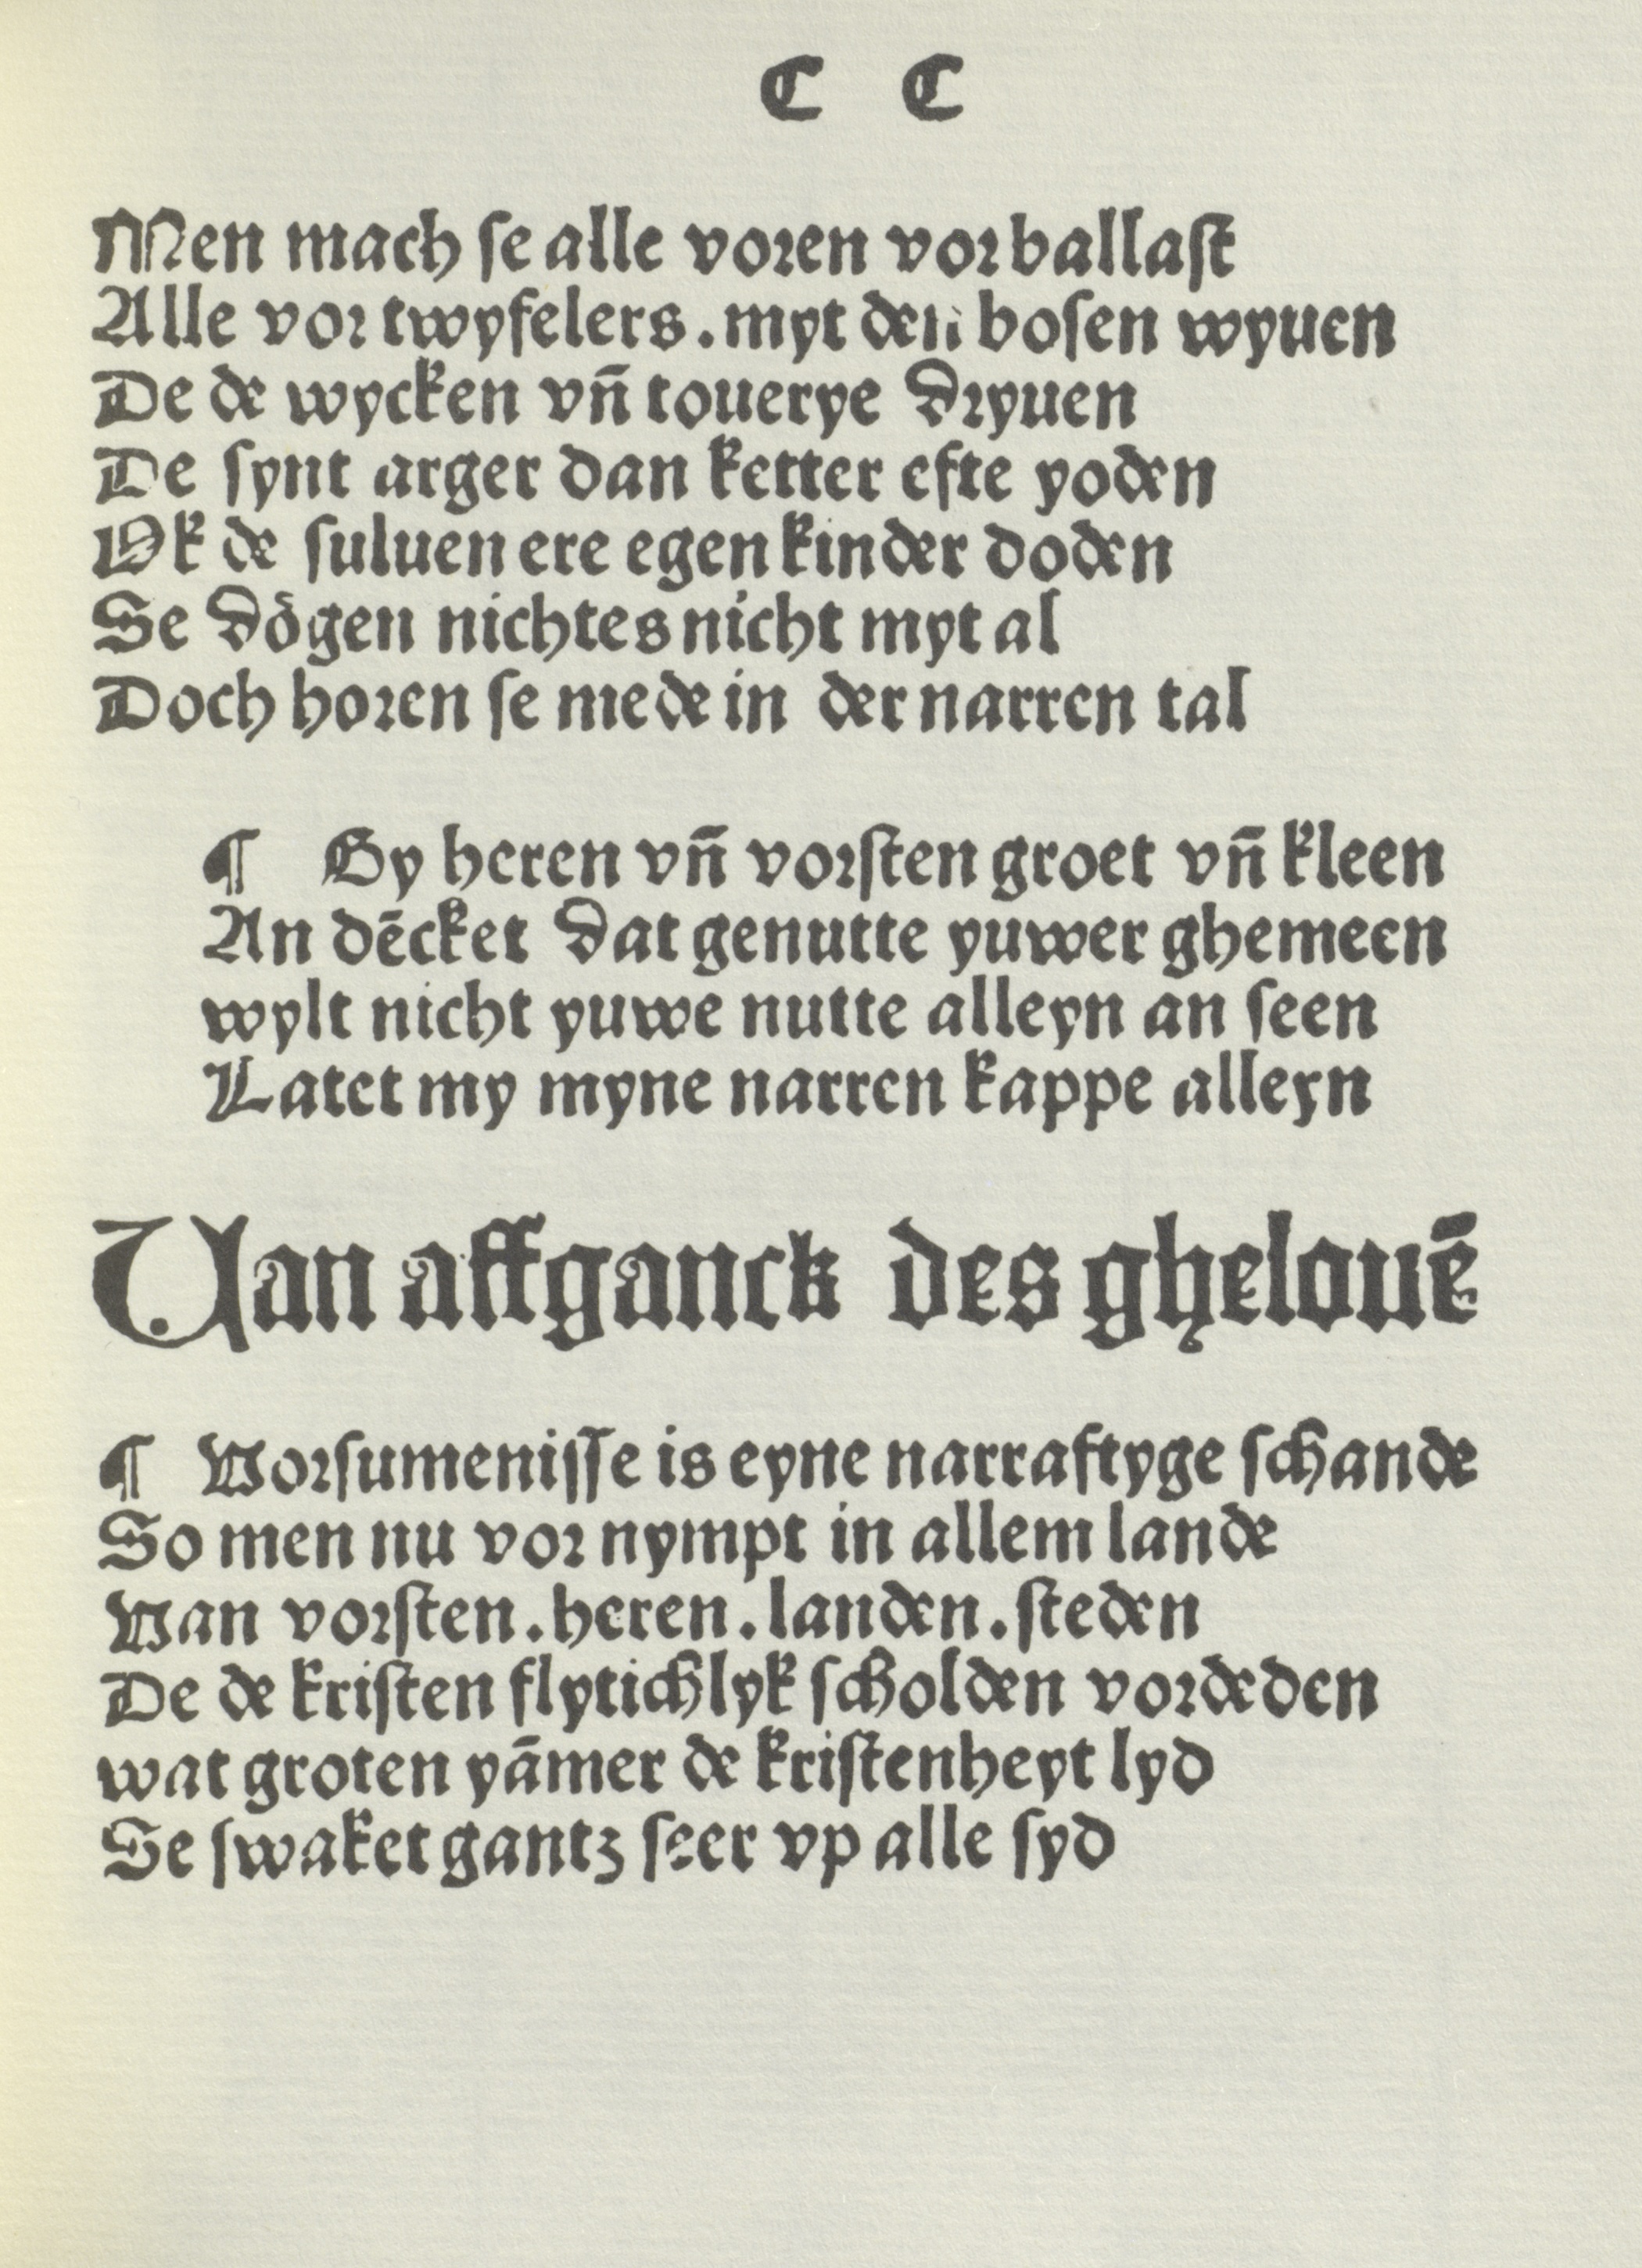 C C
Men mach se alle voren vor ballast
Alle vor twyfelers. myt den bosen wyuen
De de wycken vñ touerye dryuen
De synt arger dan ketter efte yoden
Ok de suluen ere egen kinder doden
Se doͤgen nichtes nicht myt al
Doch horen se mede in der narren tal
¶ Gy heren vñ vorsten groet vñ kleen
An dēcket dat genutte yuwer ghemeen
wylt nicht yuwe nutte alleyn an seen
Latet my myne narren kappe alleyn
Uan affganck des ghelouē
¶ Vorsumenisse is eyne narraftyge schande
So men nu vor nympt in allem lande
Van vorsten. heren. landen. steden
De de kristen flytichlyk scholden vordeden
wat groten yāmer de kristenheyt lyd
Se swaket gantz seer vp alle syd